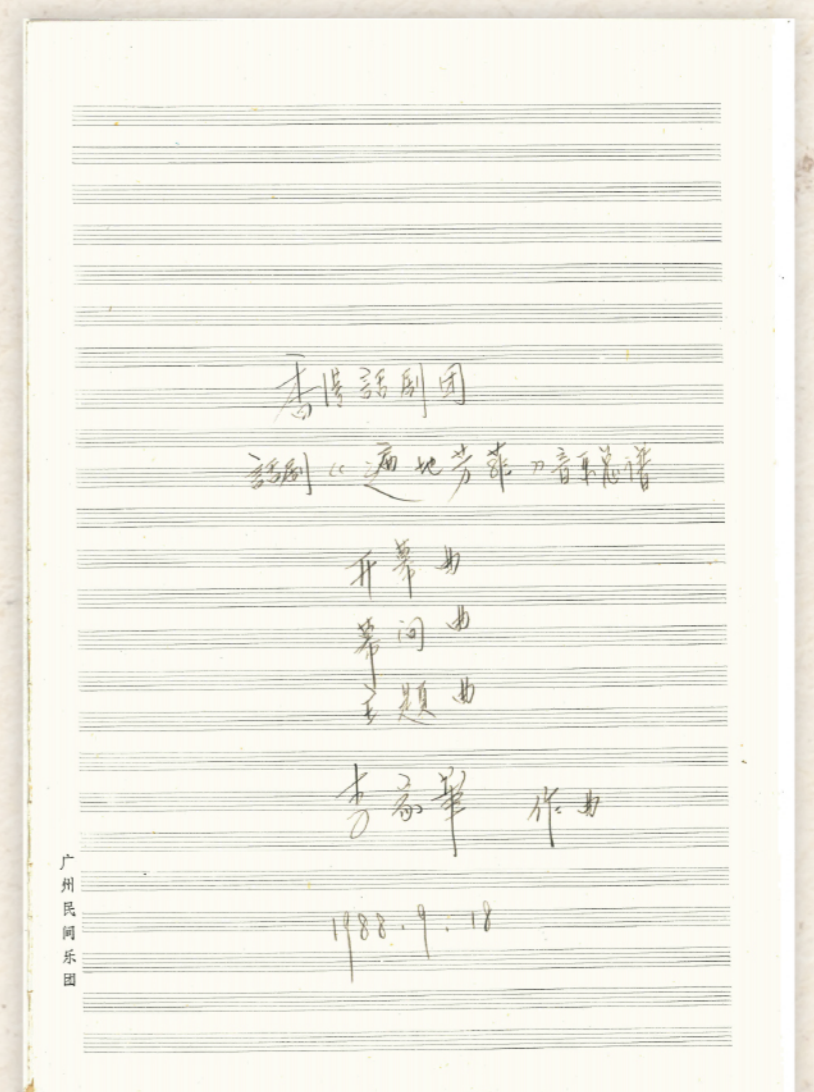 香港話剧团
話剧《遍地芳菲》音乐总谱
开幕曲
幕间曲
主题曲
李家華 作曲
1988.9.18
广州民间乐团